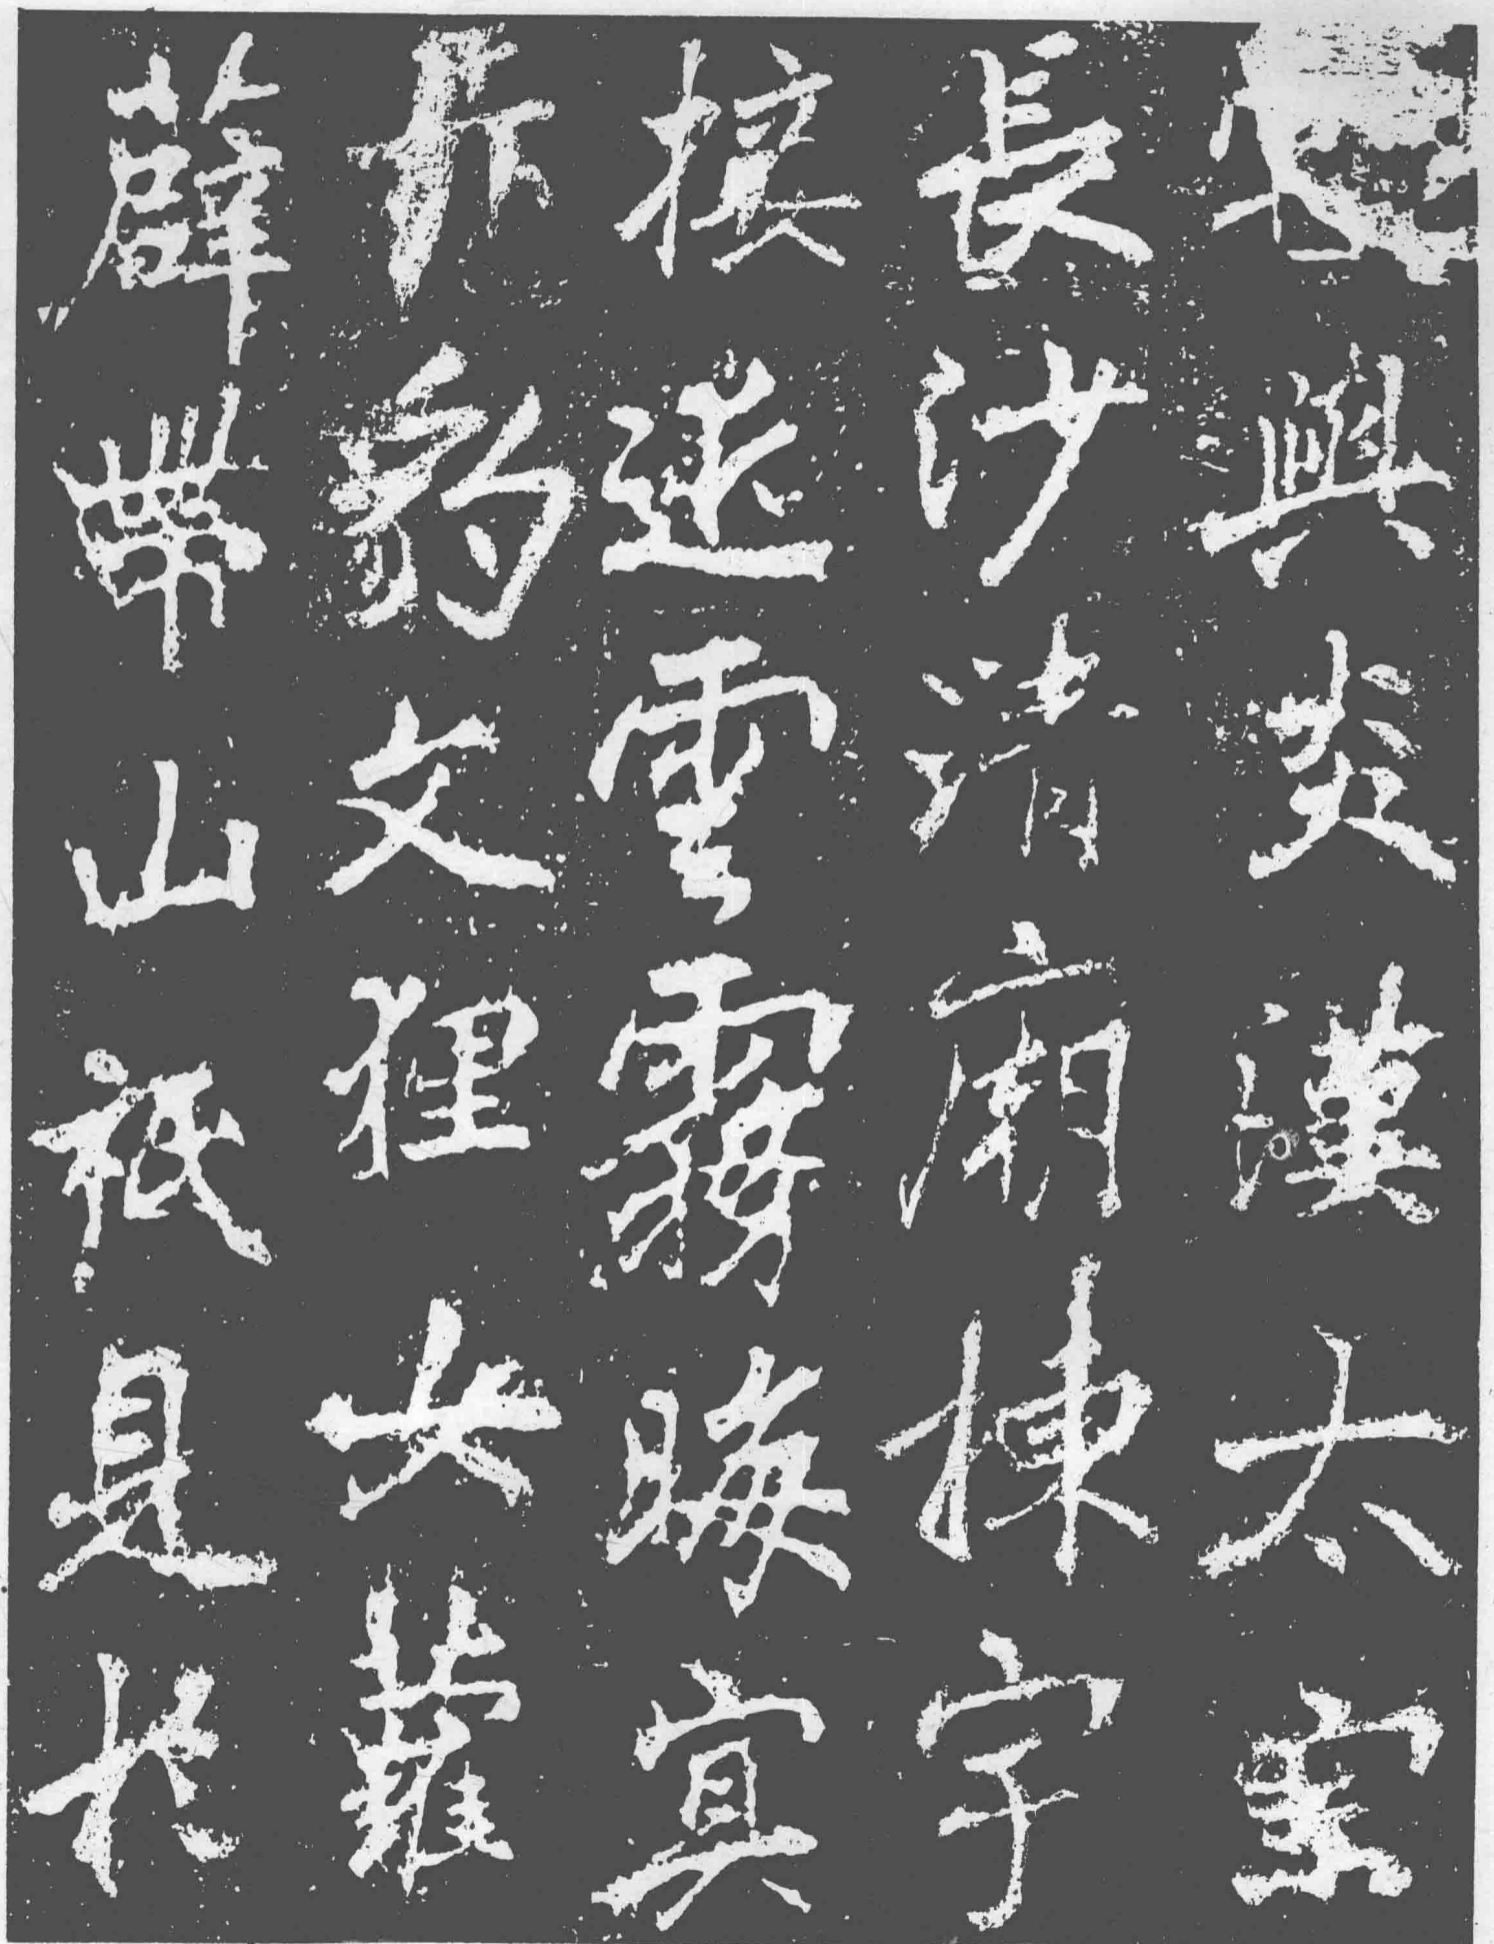 與炎漢太室
長沙清廟棟宇
接迩雲霧晦冥
赤豹文狸女蘿
薜帶山祇見於